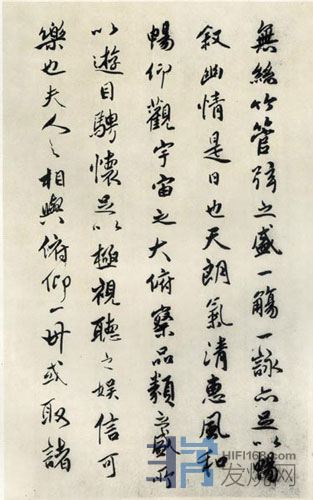 無絲竹管弦之盛一觴一詠亦足以暢
叙幽情是日也天朗氣清惠風和
暢仰觀宇宙之大俯察品類之盛所
以遊目騁懷足以極視聽之娛信可
樂也夫人之相與俯仰一世或取諸
HIFI168.com
发烧网